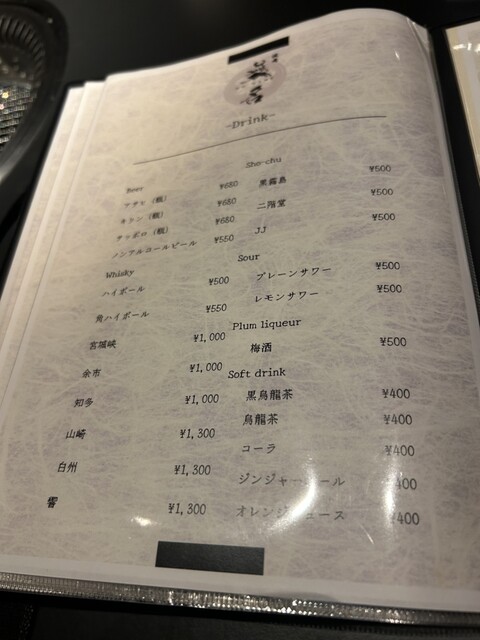 -Drink-
Beer
アサヒ (瓶) ¥680
キリン (瓶) ¥680
サッポロ (瓶) ¥680
ノンアルコールビール ¥550
Whisky
ハイボール ¥500
角ハイボール ¥550
宮城峡 ¥1,000
余市 ¥1,000
知多 ¥1,000
山崎 ¥1,300
白州 ¥1,300
響 ¥1,300
Sho-chu
黒霧島 ¥500
二階堂 ¥500
JJ ¥500
Sour
プレーンサワー ¥500
レモンサワー ¥500
Plum liqueur
梅酒 ¥500
Soft drink
黒烏龍茶 ¥400
烏龍茶 ¥400
コーラ ¥400
ジンジャーエール ¥400
オレンジジュース ¥400